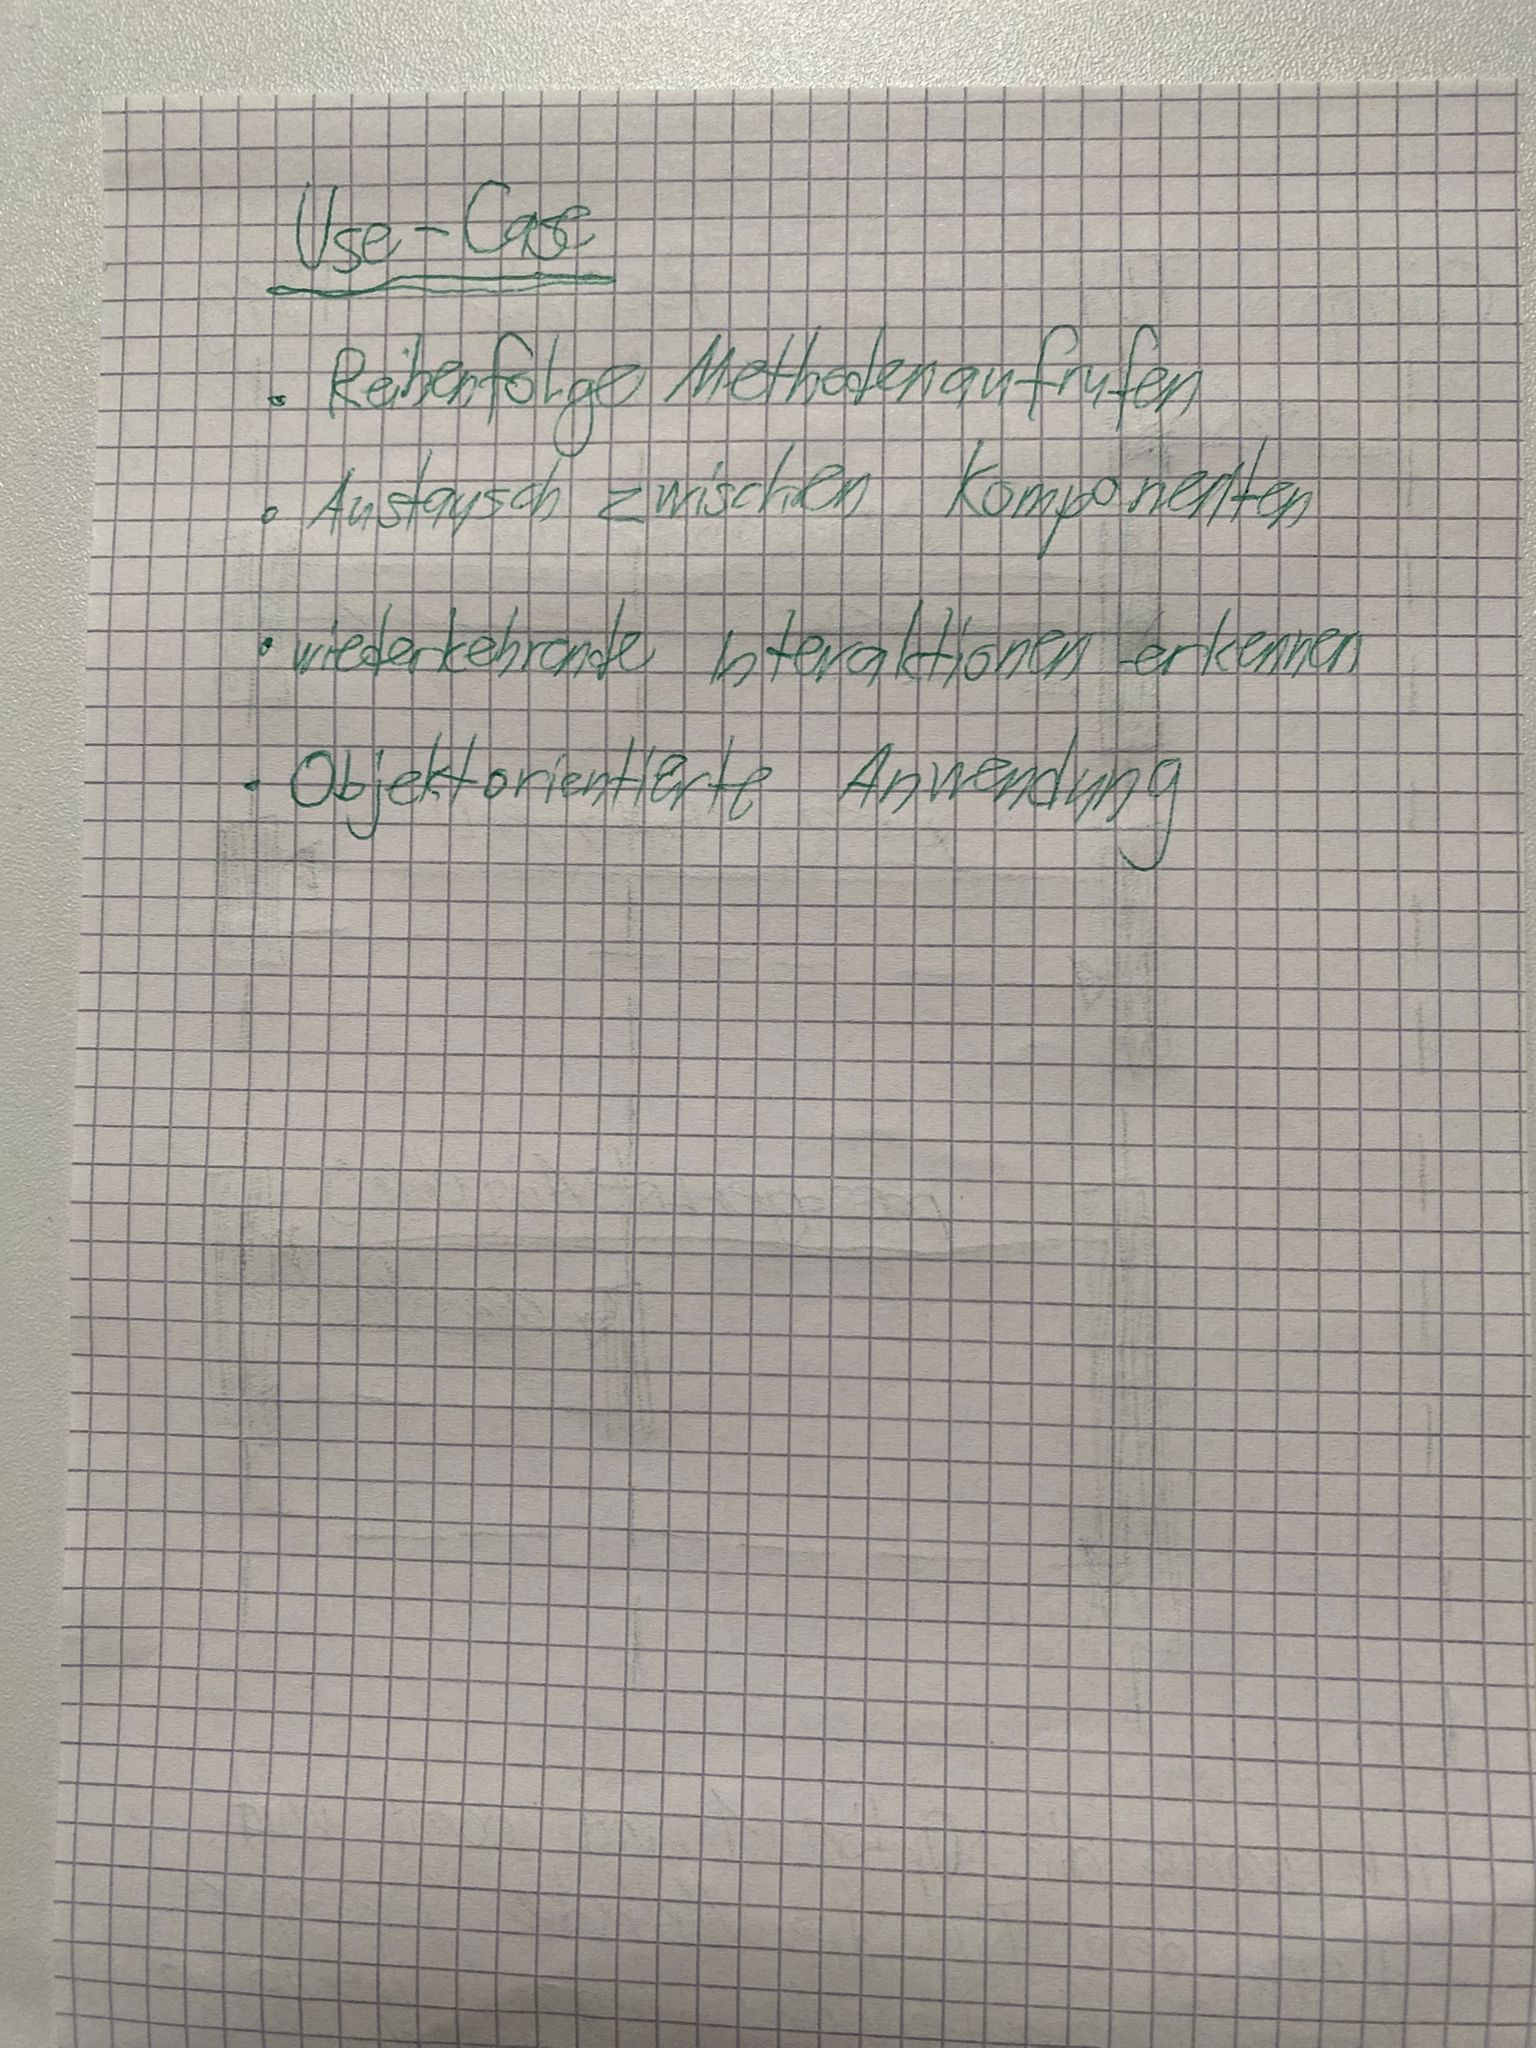 Use-Case
• Reihenfolge Methodenaufrufen
• Austausch zwischen Komponenten
• wiederkehrende Interaktionen erkennen
• Objektorientierte Anwendung